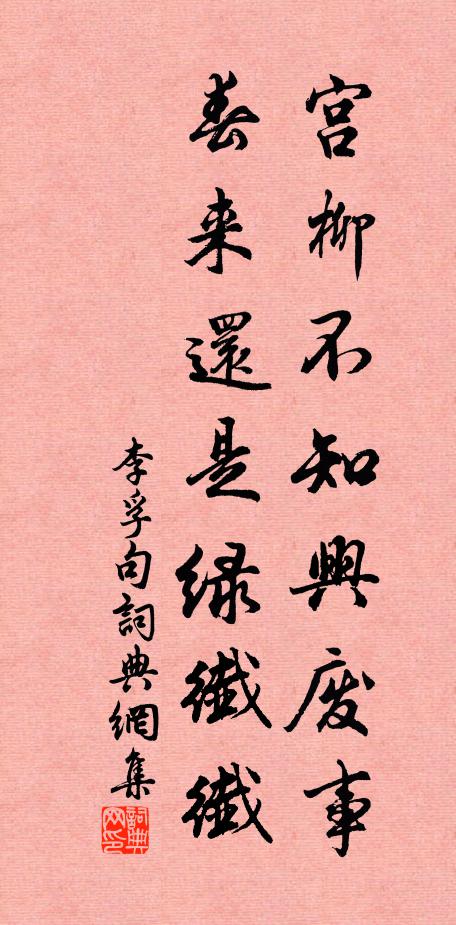 宫柳不知興廢事
春来還是緑纖纖
李孚句詞典網集
詞典网印